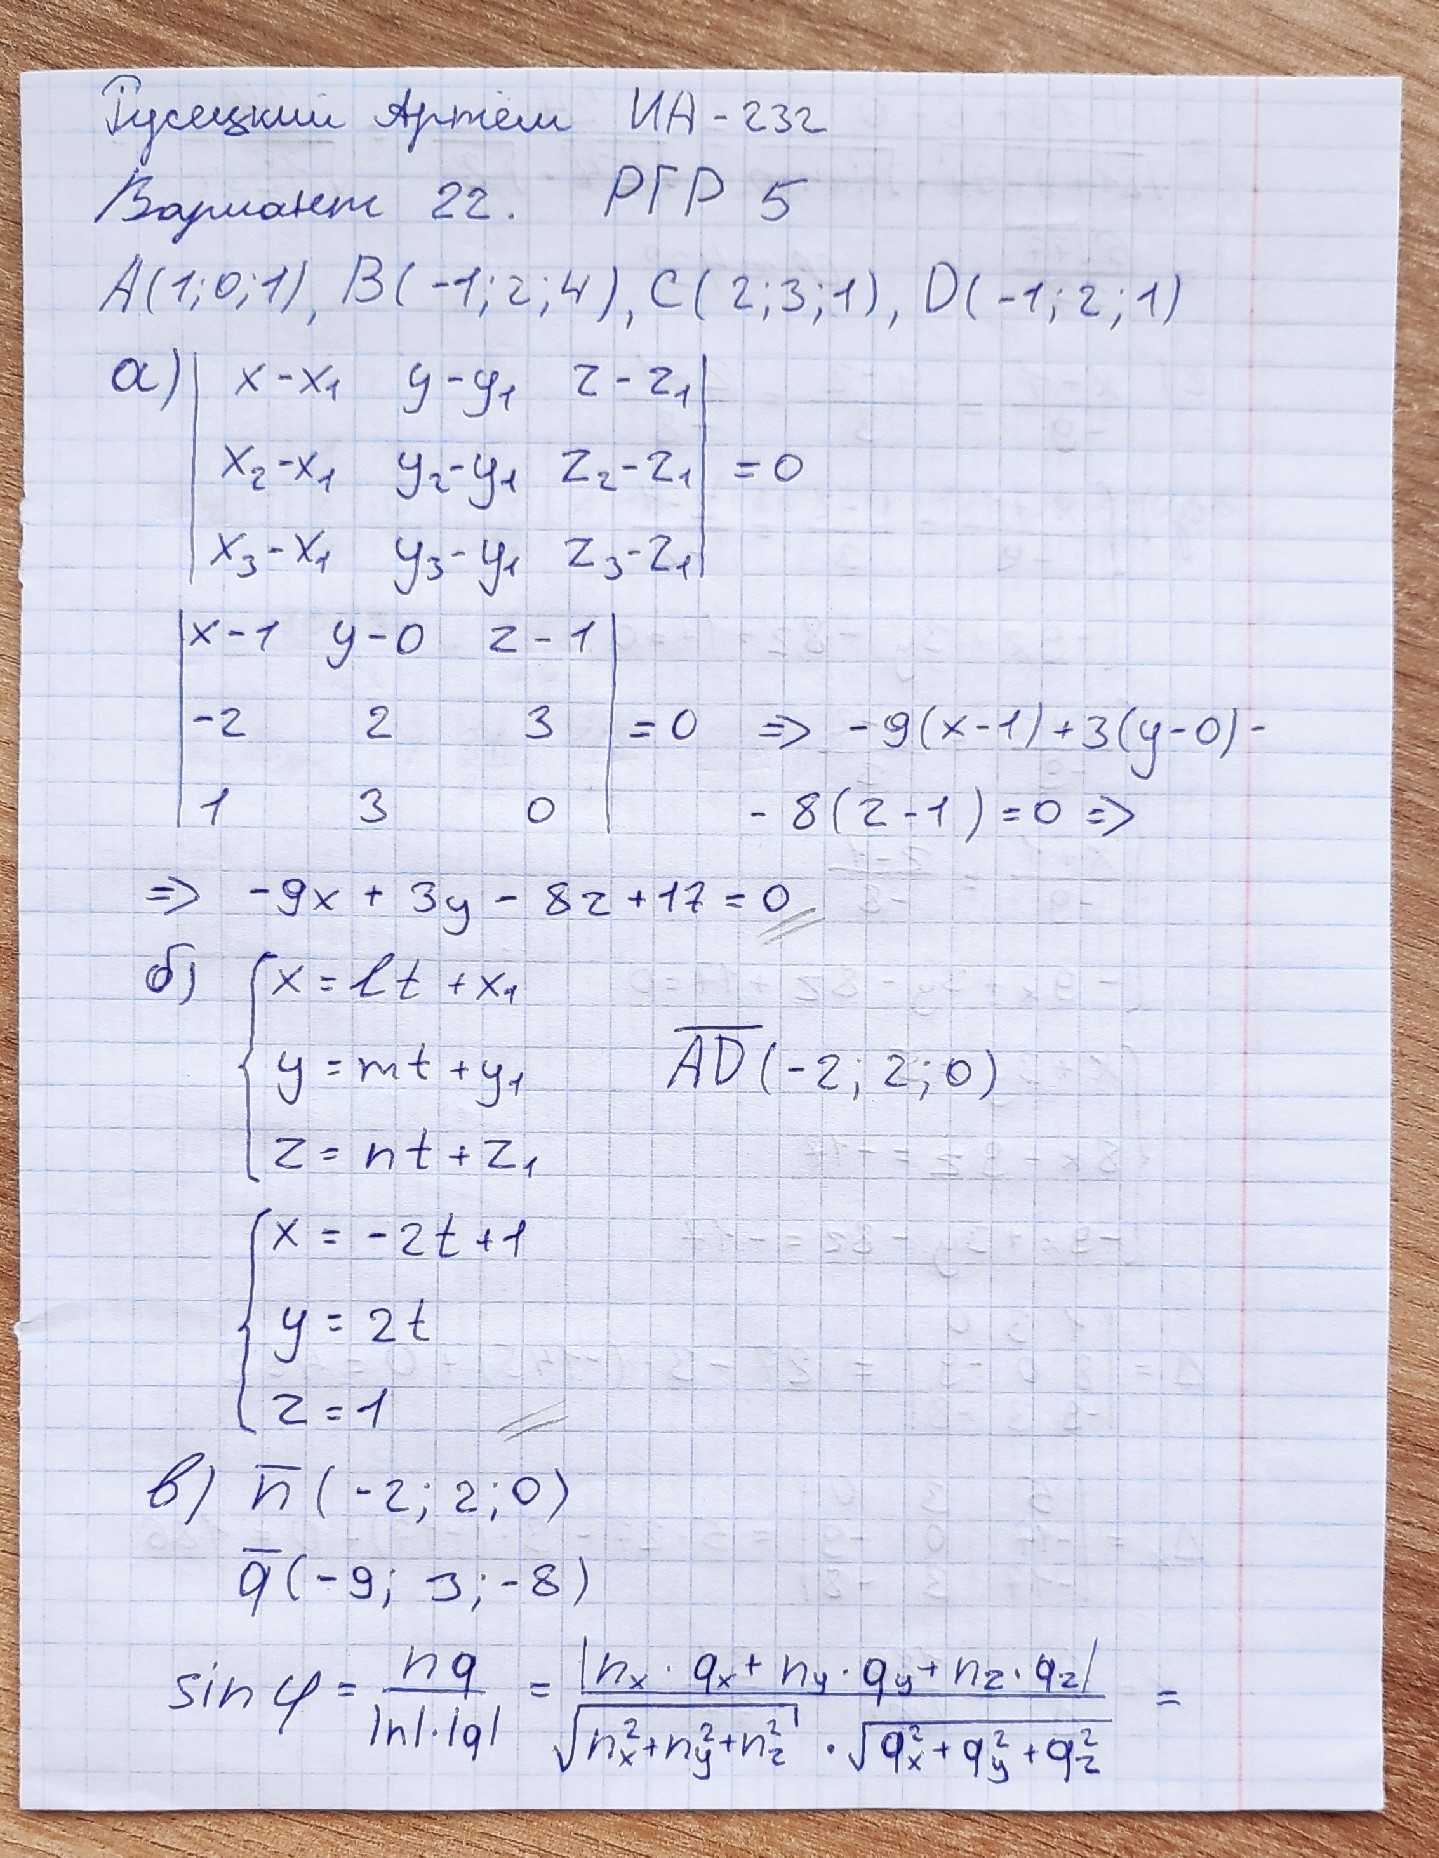 Гусецкий Артём ИА-232
Вариант 22. РГР 5
A(1;0;1), B(-1;2;4), C(2;3;1), D(-1;2;1)
а) | x-x₁ y-y₁ z-z₁ |
| x₂-x₁ y₂-y₁ z₂-z₁ | = 0
| x₃-x₁ y₃-y₁ z₃-z₁ |
| x-1 y-0 z-1 |
| -2 2 3 | = 0 => -9(x-1)+3(y-0)-
| 1 3 0 | -8(z-1)=0 =>
=> -9x+3y-8z+17=0
б) { x=lt+x₁
y=mt+y₁ A̅D̅(-2;2;0)
z=nt+z₁
{ x=-2t+1
y=2t
z=1
в) n̅(-2;2;0)
q̅(-9;3;-8)
sin φ = nq / |n|·|q| = |nₓ·qₓ+n_y·q_y+n_z·q_z| / √(nₓ²+n_y²+n_z²) · √(qₓ²+q_y²+q_z²) =